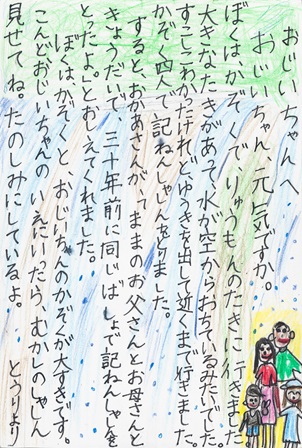 おじいちゃんへ
おじいちゃん、元気ですか。
ぼくは、かぞくで、りゅうもんのたきに行きました。
大きなたきがあって、水が空からおちているみたいでした。
すこしこわかったけれど、ゆうきを出して近くまで行きました。
かぞく四人で、記ねんしゃしんをとりました。
すると、おかあさんが、「ままのお父さんとお母さんと
きょうだいで、三十年前に同じばしょで記ねんしゃしんを
とったよ。」とおしえてくれました。
ぼくは、かぞくと、おじいちゃんのかぞくが大すきです。
こんどおじいちゃんのいえにいったら、むかしのしゃしん
見せてね。たのしみにしているよ。
とうりより